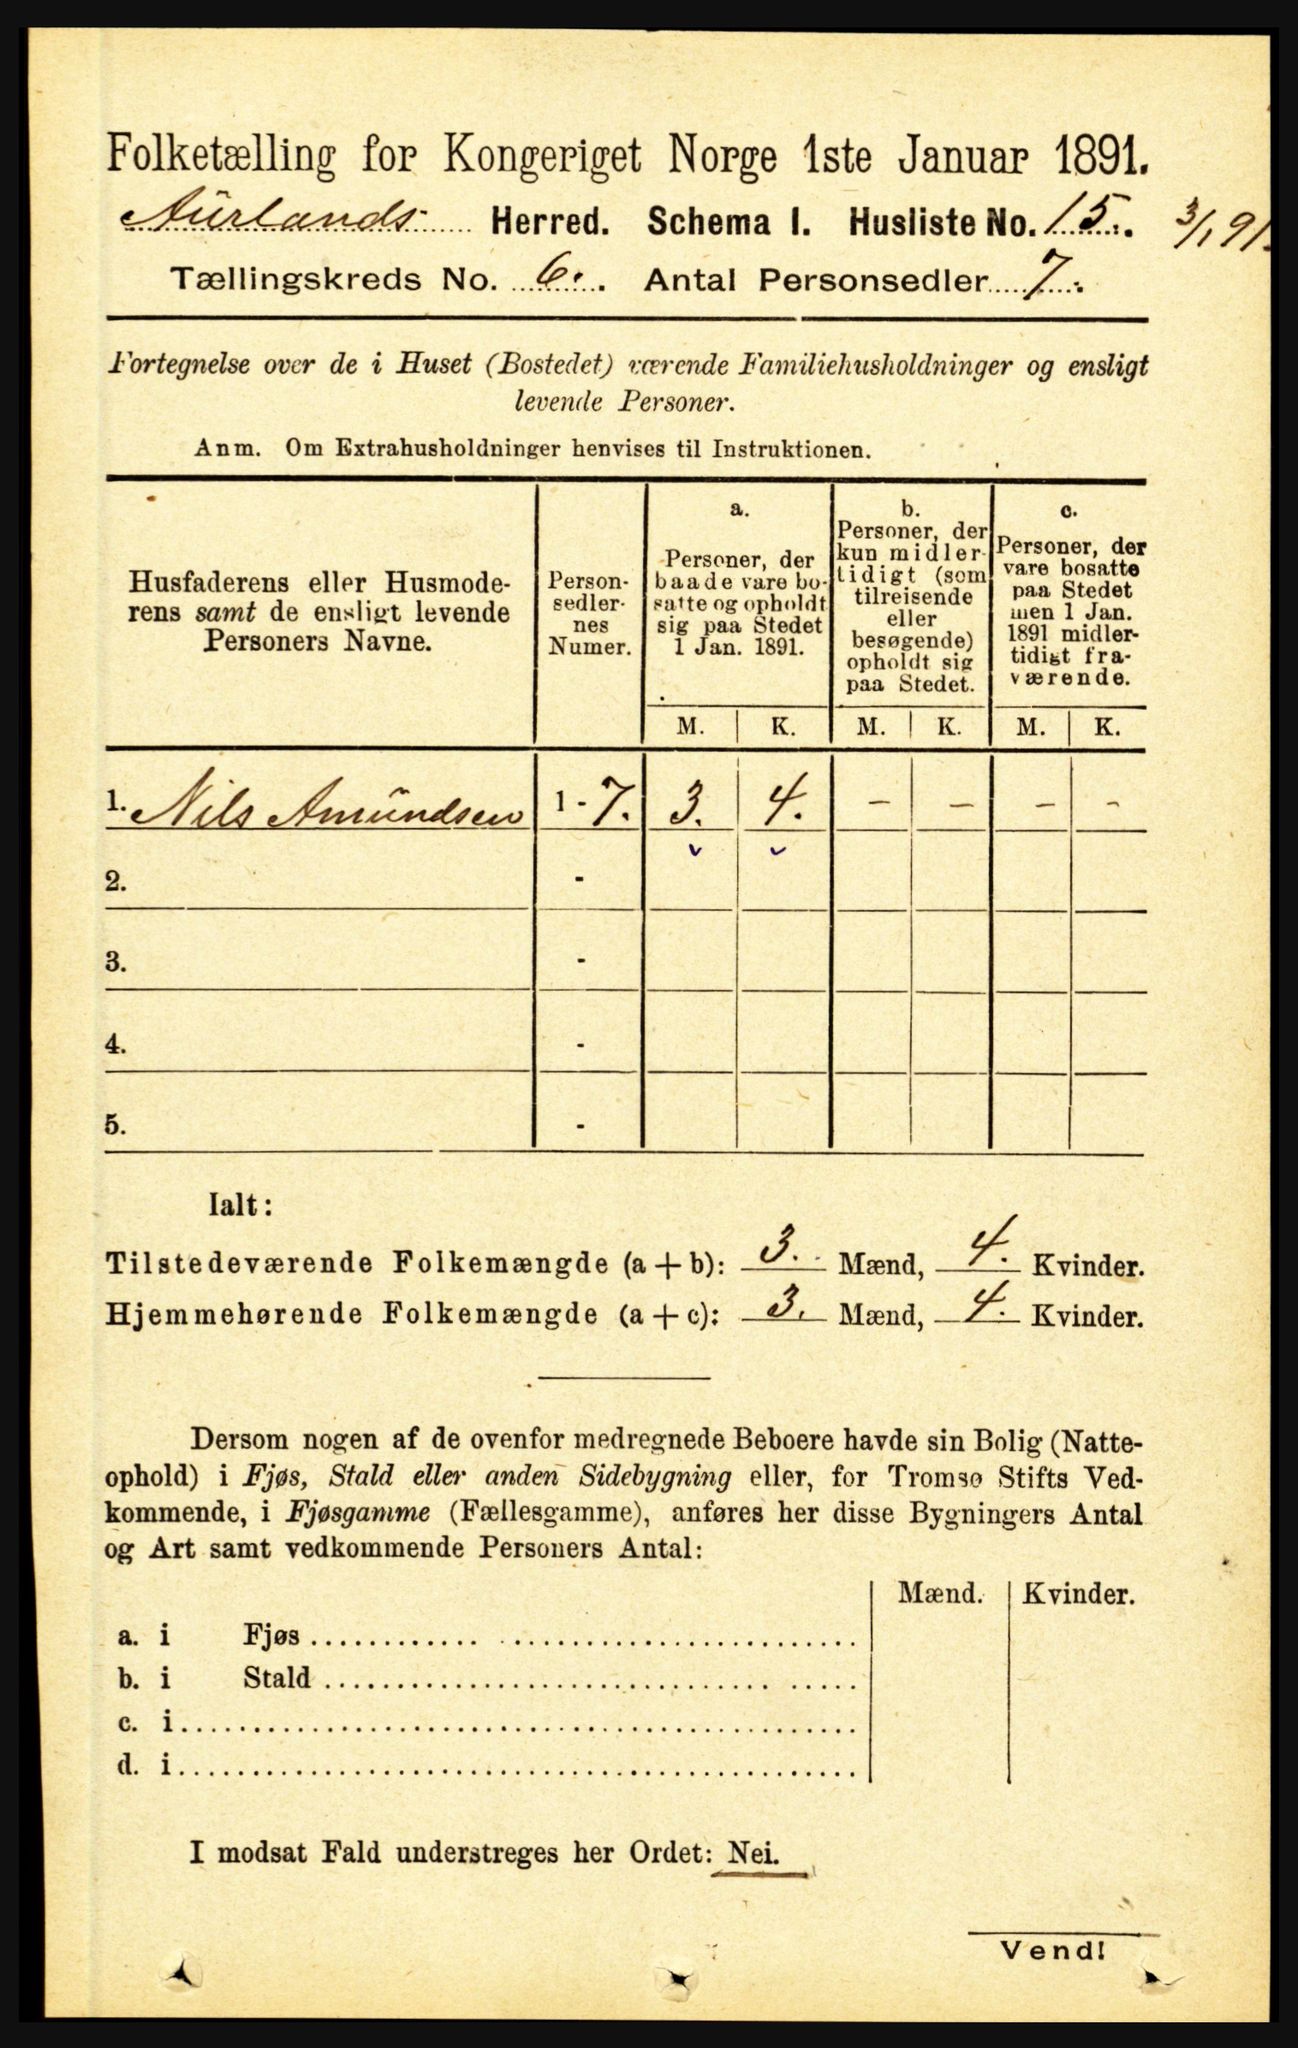 Folketælling for Kongeriget Norge 1ste Januar 1891.
Aurlands Herred. Schema I. Husliste No. 15. 3/1 91.
Tællingskreds No. 6. Antal Personsedler 7.
Fortegnelse over de i Huset (Bostedet) værende Familiehusholdninger og ensligt
levende Personer.
Anm. Om Extrahusholdninger henvises til Instruktionen.
Husfaderens eller Husmode-
rens samt de ensligt levende
Personers Navne.
Person-
sedler-
nes
Numer.
a.
Personer, der
baade vare bo-
satte og opholdt
sig paa Stedet
1 Jan. 1891.
b.
Personer, der
kun midler-
tidigt (som
tilreisende
eller
besøgende)
opholdt sig
paa Stedet.
c.
Personer, der
vare bosatte
paa Stedet
men 1 Jan.
1891 midler-
tidigt fra-
værende.
M. K. M. K. M. K.
1. Nils Amundsen 1 - 7. 3. 4. - - - -
2. -
3. -
4. -
5. -
Ialt:
Tilstedeværende Folkemængde (a + b): 3. Mænd, 4. Kvinder.
Hjemmehørende Folkemængde (a + c): 3. Mænd, 4. Kvinder.
Dersom nogen af de ovenfor medregnede Beboere havde sin Bolig (Natte-
ophold) i Fjøs, Stald eller anden Sidebygning eller, for Tromsø Stifts Ved-
kommende, i Fjøsgamme (Fællesgamme), anføres her disse Bygningers Antal
og Art samt vedkommende Personers Antal:
Mænd. Kvinder.
a. i Fjøs
b. i Stald
c. i
d. i
I modsat Fald understreges her Ordet: Nei.
Vend!